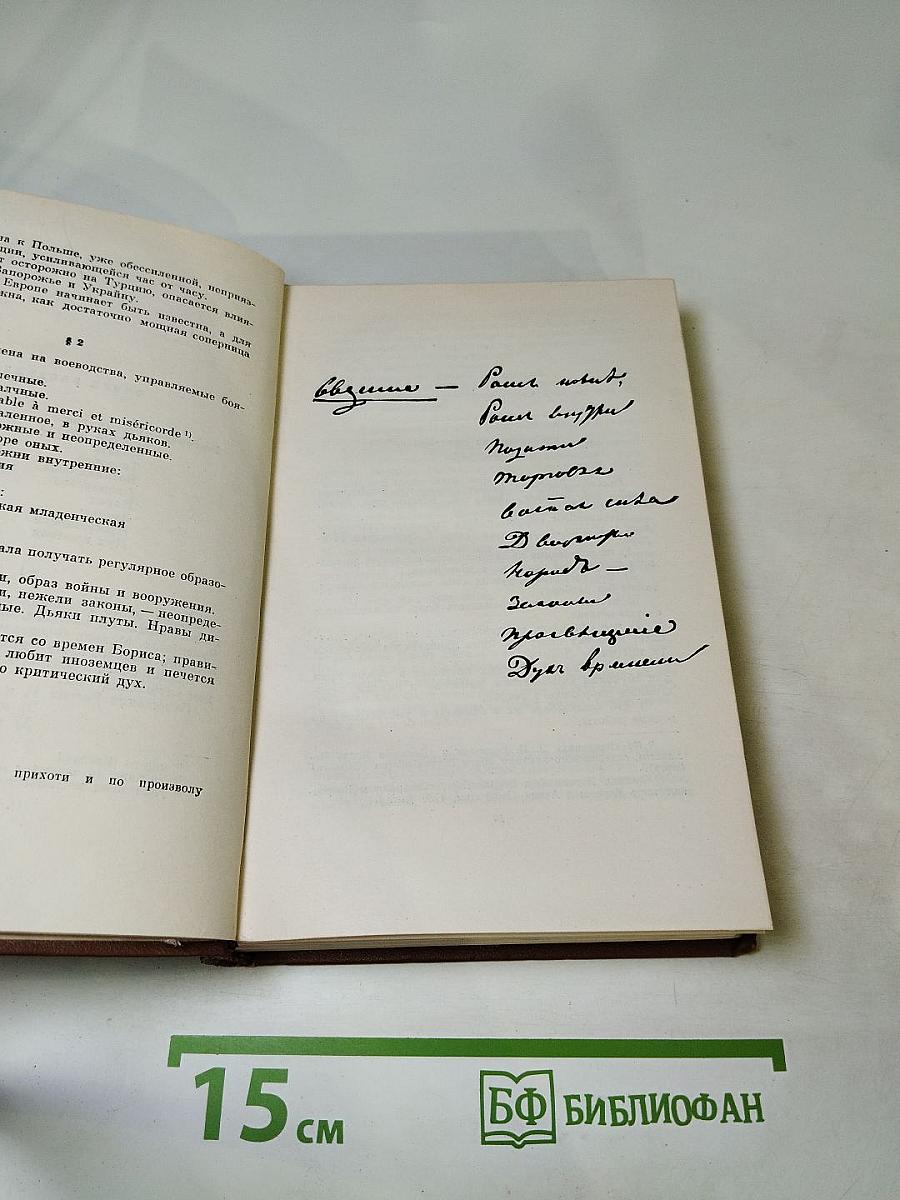 на к Польше, уже обессиленной, неприяз-
ции, усиливающейся час от часу.
т осторожно на Турцию, опасается влия-
Запорожье и Украйну.
Европе начинает быть известна, а для
жна, как достаточно мощная соперница
§ 2
ена на воеводства, управляемые боя-
ечные.
алчные.
able à merci et miséricorde ¹).
аленное, в руках дьяков.
ожные и неопределенные.
оре оных.
ожни внутренние:
ия
:
кая младенческая
ала получать регулярное образо-
и, образ войны и вооружения.
и, нежели законы, — неопреде-
ные. Дьяки плуты. Нравы ди-
тся со времен Бориса; прави-
любит иноземцев и печется
о критический дух.
прихоти и по произволу
Введение — Россия извне,
Россия внутри
Подати
Торговля
Военная сила
Дворянство
Народъ —
Законы
Просвѣщеніе
Духъ времени
15 см
БФ БИБЛИОФАН